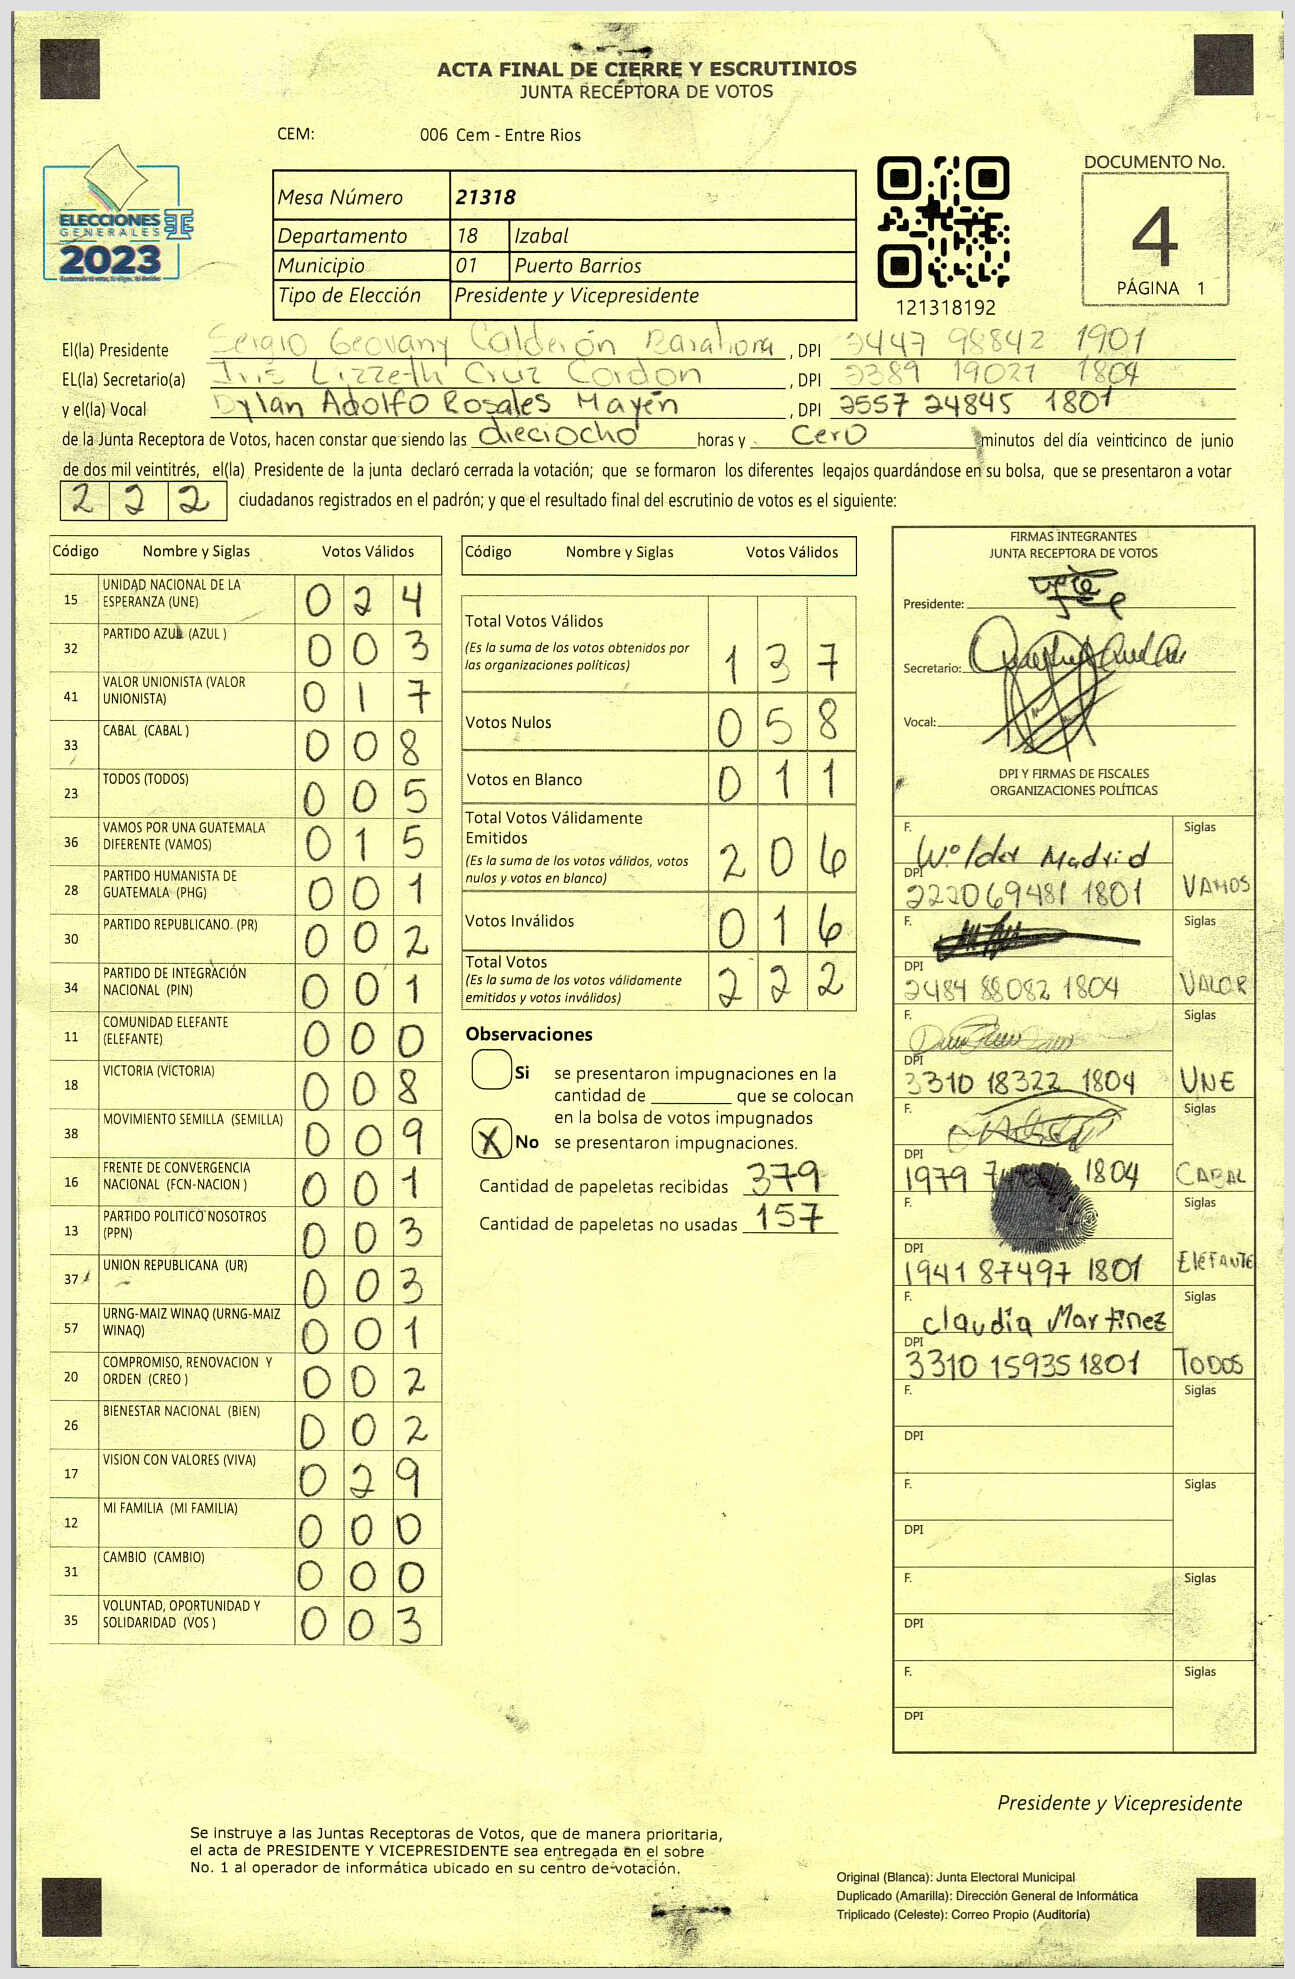 ACTA FINAL DE CIERRE Y ESCRUTINIOS
JUNTA RECEPTORA DE VOTOS
CEM: 006 Cem - Entre Rios
ELECCIONES
GENERALES
2023
Mesa Número 21318
Departamento 18 Izabal
Municipio 01 Puerto Barrios
Tipo de Elección Presidente y Vicepresidente
121318192
DOCUMENTO No.
4
PÁGINA 1
El(la) Presidente Sergio Geovany Calderón Barahona, DPI 2447 98842 1901
EL(la) Secretario(a) Iris Lizzeth Cruz Cordon, DPI 2389 19021 1804
y el(la) Vocal Dylan Adolfo Rosales Mayén, DPI 2557 24845 1801
de la Junta Receptora de Votos, hacen constar que siendo las dieciocho horas y cero minutos del día veinticinco de junio
de dos mil veintitrés, el(la) Presidente de la junta declaró cerrada la votación; que se formaron los diferentes legajos quardándose en su bolsa, que se presentaron a votar
2 2 2 ciudadanos registrados en el padrón; y que el resultado final del escrutinio de votos es el siguiente:
Código Nombre y Siglas Votos Válidos
15 UNIDAD NACIONAL DE LA ESPERANZA (UNE) 0 2 4
32 PARTIDO AZUL (AZUL ) 0 0 3
41 VALOR UNIONISTA (VALOR UNIONISTA) 0 1 7
33 CABAL (CABAL ) 0 0 8
23 TODOS (TODOS) 0 0 5
36 VAMOS POR UNA GUATEMALA DIFERENTE (VAMOS) 0 1 5
28 PARTIDO HUMANISTA DE GUATEMALA (PHG) 0 0 1
30 PARTIDO REPUBLICANO (PR) 0 0 2
34 PARTIDO DE INTEGRACIÓN NACIONAL (PIN) 0 0 1
11 COMUNIDAD ELEFANTE (ELEFANTE) 0 0 0
18 VICTORIA (VICTORIA) 0 0 8
38 MOVIMIENTO SEMILLA (SEMILLA) 0 0 9
16 FRENTE DE CONVERGENCIA NACIONAL (FCN-NACION ) 0 0 1
13 PARTIDO POLITICO NOSOTROS (PPN) 0 0 3
37 UNION REPUBLICANA (UR) 0 0 3
57 URNG-MAIZ WINAQ (URNG-MAIZ WINAQ) 0 0 1
20 COMPROMISO, RENOVACION Y ORDEN (CREO ) 0 0 2
26 BIENESTAR NACIONAL (BIEN) 0 0 2
17 VISION CON VALORES (VIVA) 0 2 9
12 MI FAMILIA (MI FAMILIA) 0 0 0
31 CAMBIO (CAMBIO) 0 0 0
35 VOLUNTAD, OPORTUNIDAD Y SOLIDARIDAD (VOS ) 0 0 3
Código Nombre y Siglas Votos Válidos
Total Votos Válidos
(Es la suma de los votos obtenidos por
las organizaciones políticas) 1 3 7
Votos Nulos 0 5 8
Votos en Blanco 0 1 1
Total Votos Válidamente
Emitidos
(Es la suma de los votos válidos, votos
nulos y votos en blanco) 2 0 6
Votos Inválidos 0 1 6
Total Votos
(Es la suma de los votos válidamente
emitidos y votos inválidos) 2 2 2
Observaciones
Si se presentaron impugnaciones en la
cantidad de ________ que se colocan
en la bolsa de votos impugnados
X No se presentaron impugnaciones.
Cantidad de papeletas recibidas 379
Cantidad de papeletas no usadas 157
FIRMAS INTEGRANTES
JUNTA RECEPTORA DE VOTOS
Presidente:
Secretario:
Vocal:
DPI Y FIRMAS DE FISCALES
ORGANIZACIONES POLÍTICAS
F. Wilder Madrid Siglas
DPI 222069481 1801 VAMOS
F. Siglas
DPI 2484 88082 1804 VALOR
F. Siglas
DPI 3310 18322 1804 UNE
F. Siglas
DPI 1979 1804 CABAL
F. Siglas
DPI 1941 87497 1801 ELEFANTE
F. Claudia Martinez Siglas
DPI 3310 15935 1801 TODOS
F. Siglas
DPI
F. Siglas
DPI
F. Siglas
DPI
F. Siglas
DPI
Presidente y Vicepresidente
Se instruye a las Juntas Receptoras de Votos, que de manera prioritaria,
el acta de PRESIDENTE Y VICEPRESIDENTE sea entregada en el sobre
No. 1 al operador de informática ubicado en su centro de votación.
Original (Blanca): Junta Electoral Municipal
Duplicado (Amarilla): Dirección General de Informática
Triplicado (Celeste): Correo Propio (Auditoría)